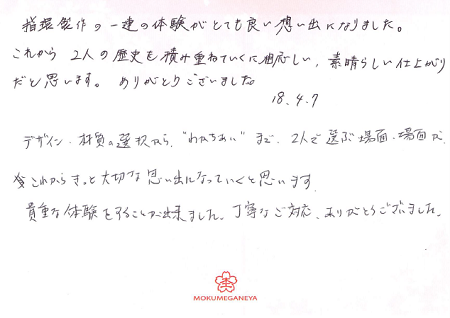 指環製作の一連の体験がとても良い想い出になりました。
これから 2人の歴史を積み重ねていくに相応しい、素晴らしい仕上がり
だと思います。 ありがとうございました。
18.4.7
デザイン・材質の選択から、"わかちあい"まで、2人で選ぶ場面・場面が、
これからきっと大切な思い出になっていくと思います。
貴重な体験をすることが出来ました。丁寧なご対応、ありがとうございました。
MOKUMEGANEYA